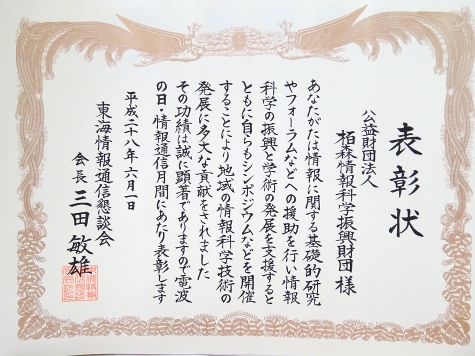 表彰状
公益財団法人
栢森情報科学振興財団様
あなたがたは情報に関する基礎的研究
やフォーラムなどへの援助を行い情報
科学の振興と学術の発展を支援すると
ともに自らもシンポジウムなどを開催
することにより地域の情報科学技術の
発展に多大な貢献をされました
その功績は誠に顕著でありますので電波
の日・情報通信月間にあたり表彰します
平成二十八年六月一日
東海情報通信懇談会
会長 三田敏雄